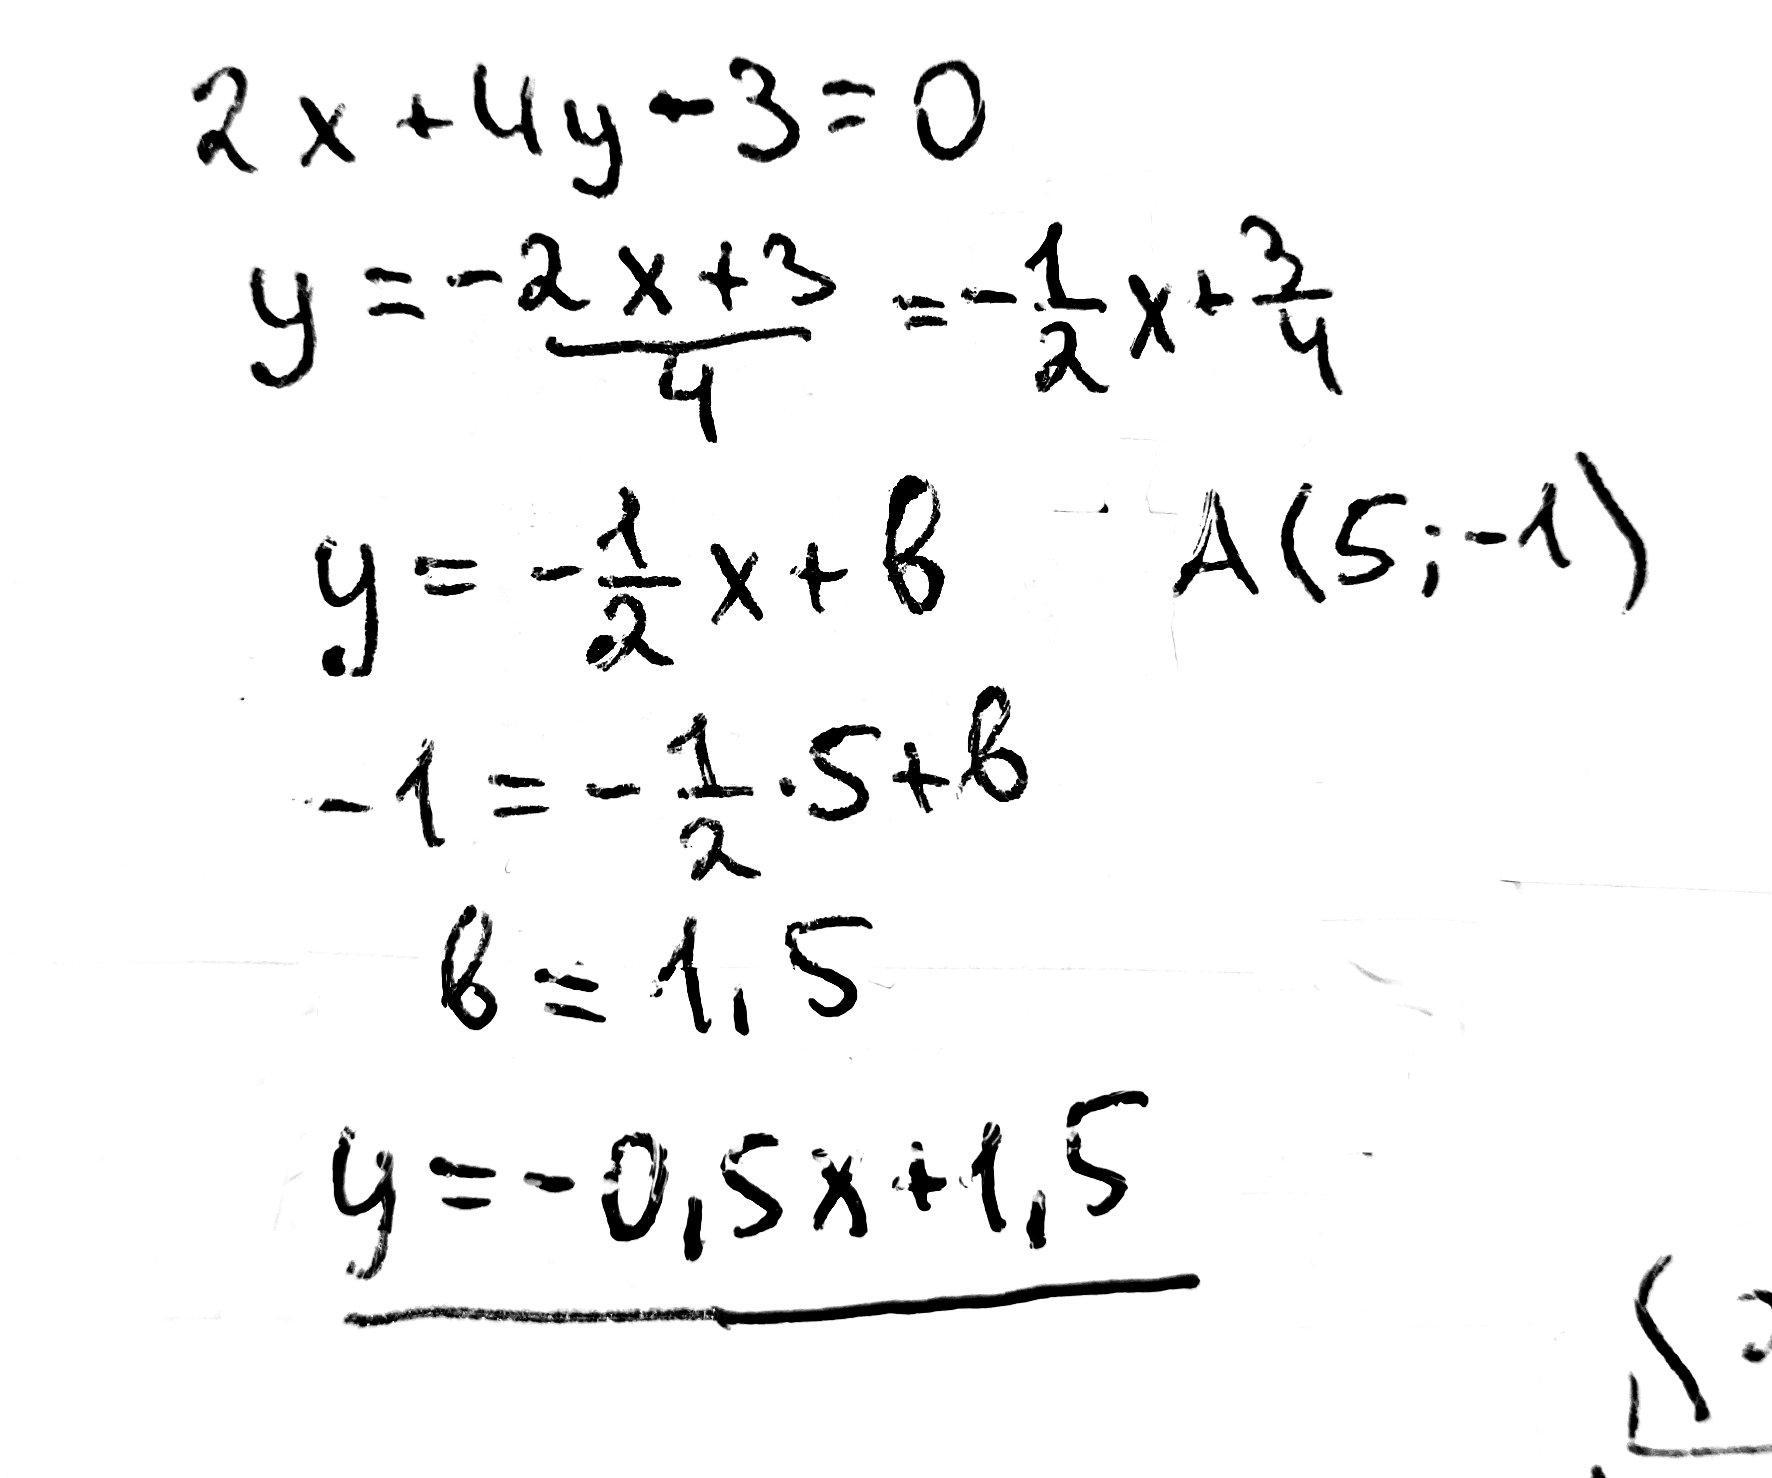 2x+4y-3=0
y=-2x+3/4=-1/2x+3/4
y=-1/2x+в A(5;-1)
-1=-1/2·5+в
в=1,5
y=-0,5x+1,5